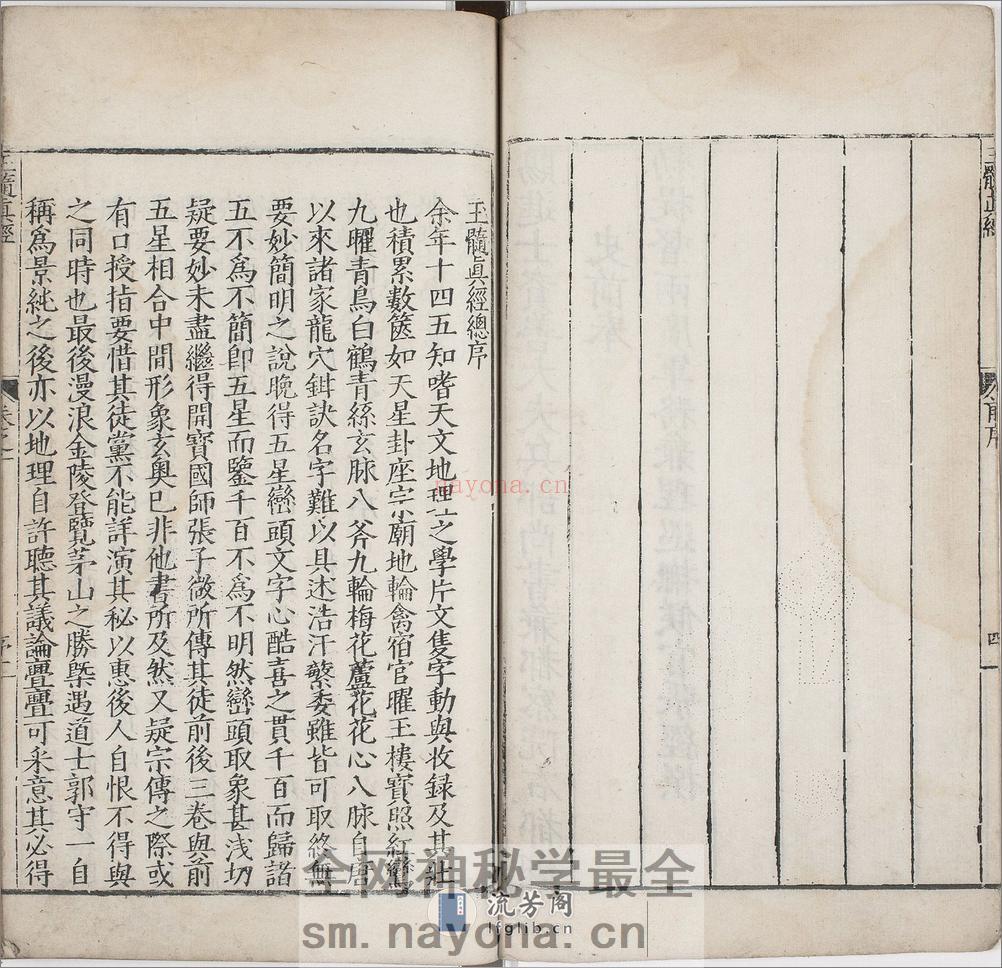 玉髓真經
前序
四
玉髓眞經總序
余年十四五知嗜天文地理之學片文隻字動與收録及其壯
也積累數篋如天星卦座宗廟地輪禽宿官曜玉樓寳照紅鸞
九曜青烏白鶴青絲玄脉八斧九輪梅花蘆花花心八脉自唐
以來諸家龍穴鉗訣名字難以具述浩汗繁委雖皆可取終無
要妙簡明之說晚得五星巒頭文字心酷喜之貫千百而歸諸
五不爲不簡卽五星而鑒千百不爲不明然巒頭取象甚浅切
疑要妙未盡繼得開寳國師張子微所傳其徒前後三卷與前
五星相合中間形象玄奥已非他書所及然又疑宗傳之際或
有口授指要惜其徒黨不能詳演其秘以惠後人自恨不得與
之同時也最後漫浪金陵登覽茅山之勝槩遇道士郭守一自
稱爲景純之後亦以地理自許聽其議論亹亹可采意其必得
玉髓眞經
卷之一
序一
nayona.cn
全网神秘学最全
流芳阁
lfglib.cn
sm.nayona.cn